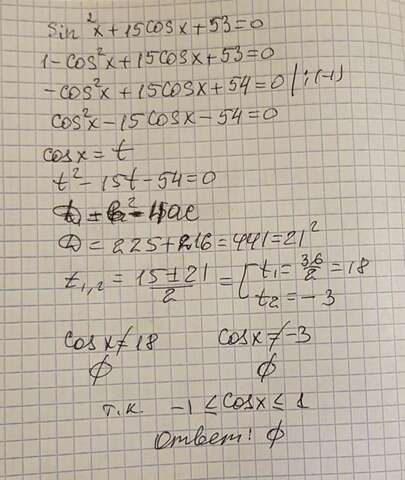 sin²x+15cosx+53=0
1-cos²x+15cosx+53=0
-cos²x+15cosx+54=0 |:(-1)
cos²x-15cosx-54=0
cosx=t
t²-15t-54=0
D=b²-4ac
D=225+216=441=21²
t₁,₂=(15±21)/2=[t₁=36/2=18
t₂=-3
cosx≠18 cosx≠-3
∅ ∅
т.к. -1≤cosx≤1
Ответ: ∅